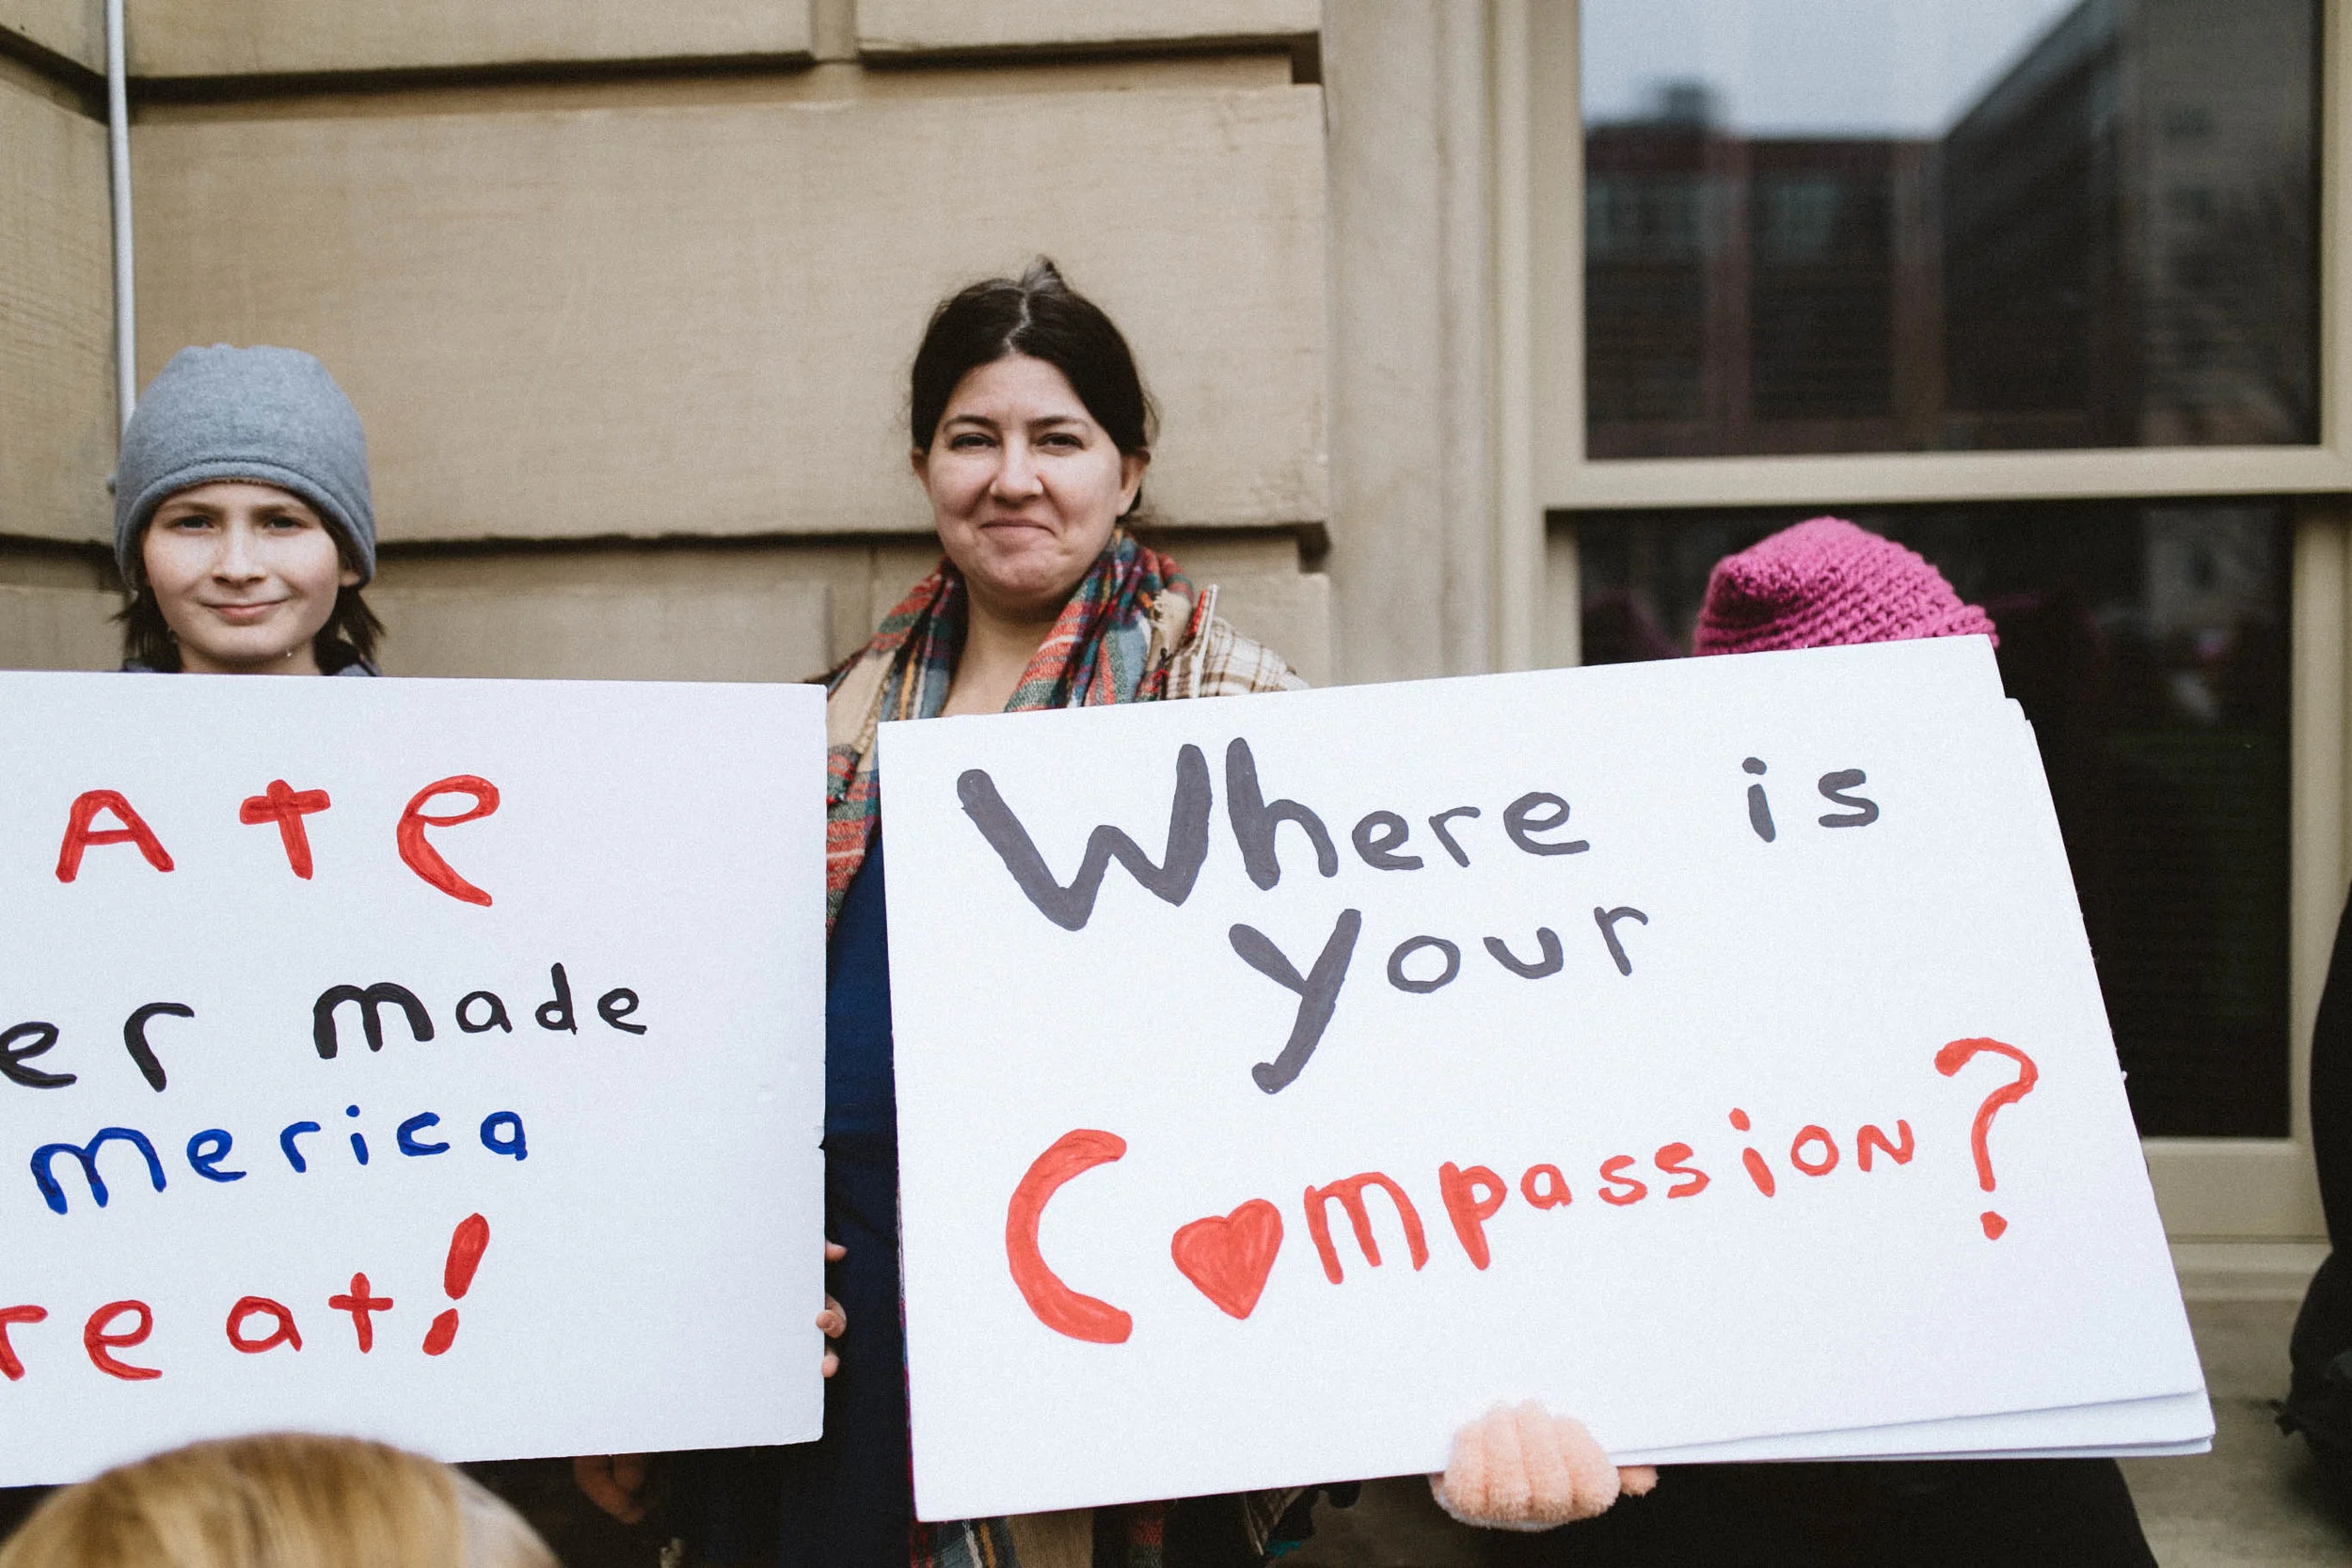 Ate
er made
merica
reat!
Where is
your
C♥mpassion?